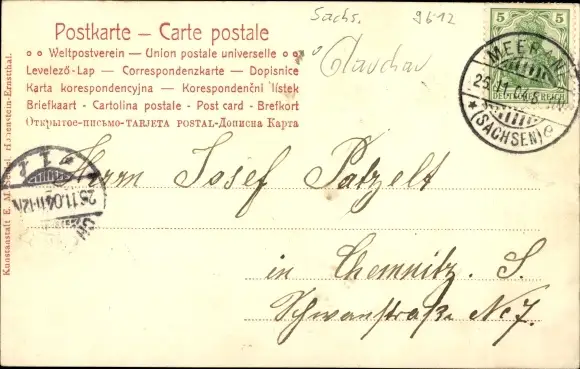 Sachs. 9612
Glauchau
Postkarte — Carte postale
Weltpostverein — Union postale universelle
Levelező-Lap — Correspondenzkarte — Dopisnice
Karta korespondencyjna — Korespondenční lístek
Briefkaart - Cartolina postale - Post card - Brefkort
Открытое-письмо-TARJETA POSTAL-Дописна Карта
5 5
DEUTSCHES REICH
MEERAN
25.11.04.
(SACHSEN)
25.11.04.11-12N
Herrn Josef Patzelt
in Chemnitz. S.
Schwanstraße No 7.
Kunstanstalt E. M.
Hohenstein-Ernstthal.